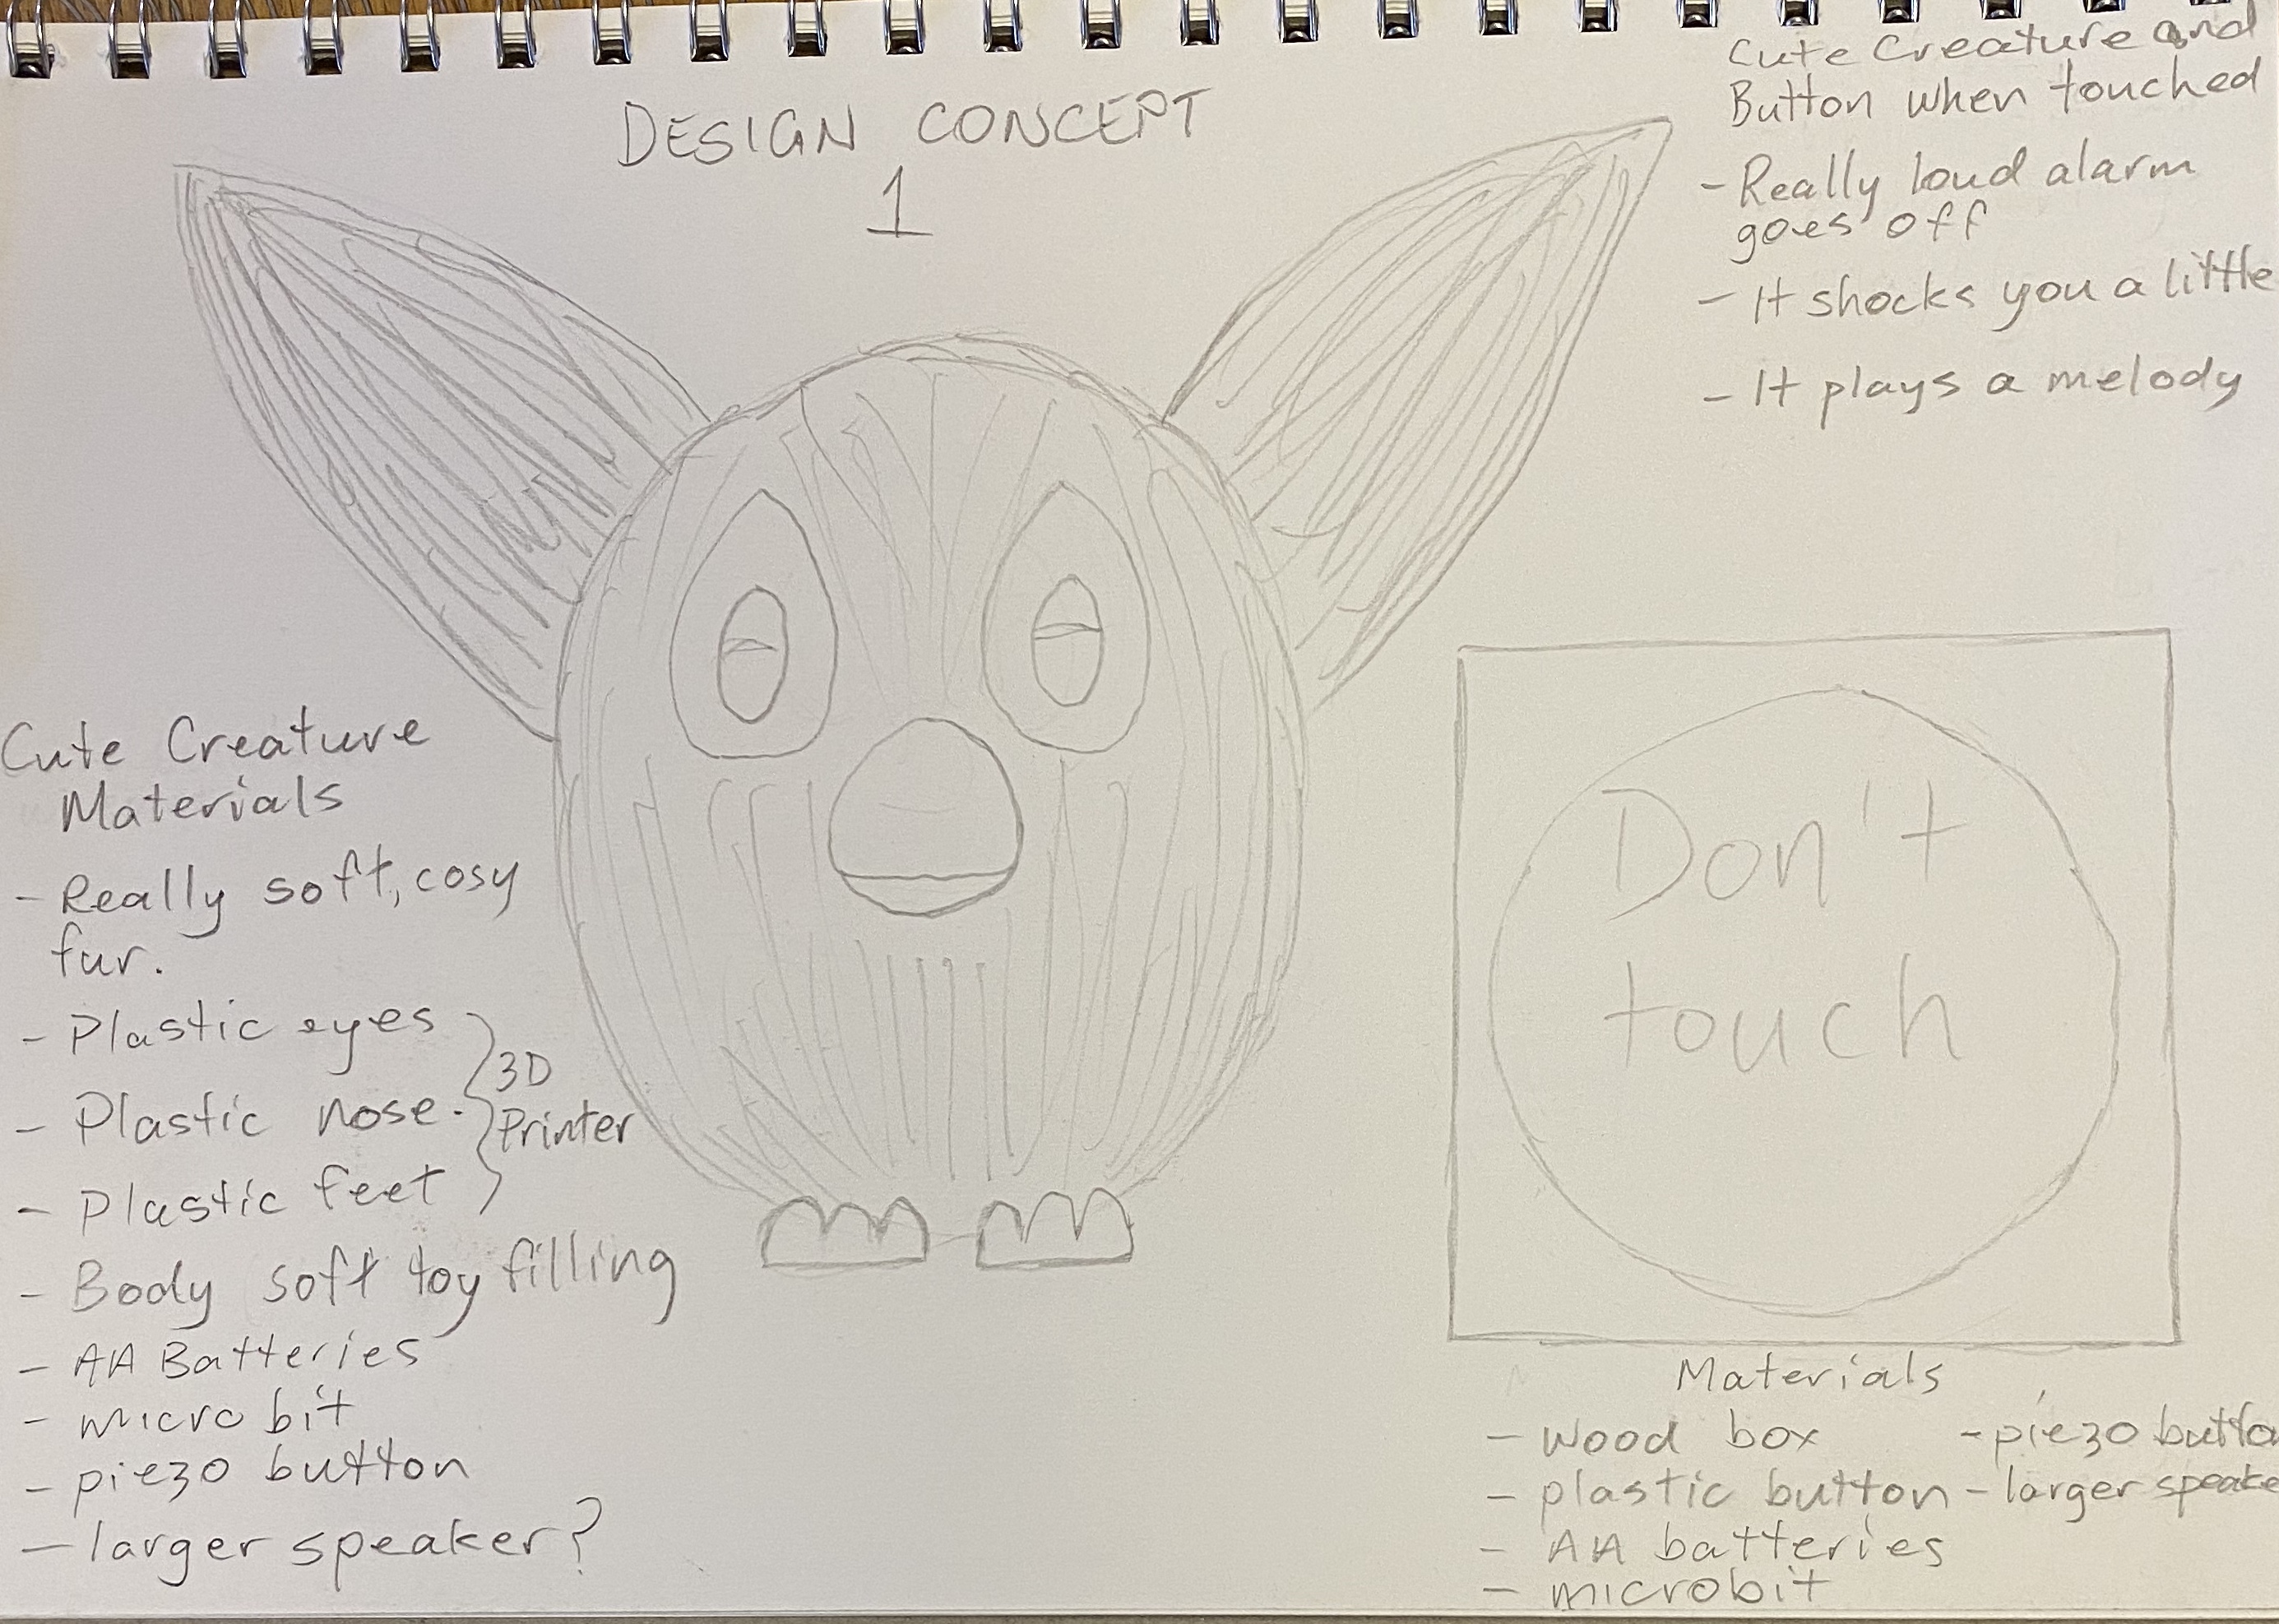 DESIGN CONCEPT
1
Cute Creature and
Button when touched
- Really loud alarm
goes off
- It shocks you a little
- It plays a melody
Cute Creature
Materials
- Really soft, cosy
fur.
- Plastic eyes
- Plastic nose.
- Plastic feet
3D
Printer
- Body soft toy filling
- AA Batteries
- micro bit
- piezo button
- larger speaker?
Don't
touch
Materials
- wood box
- plastic button
- AA batteries
- microbit
- piezo butto
- larger speake